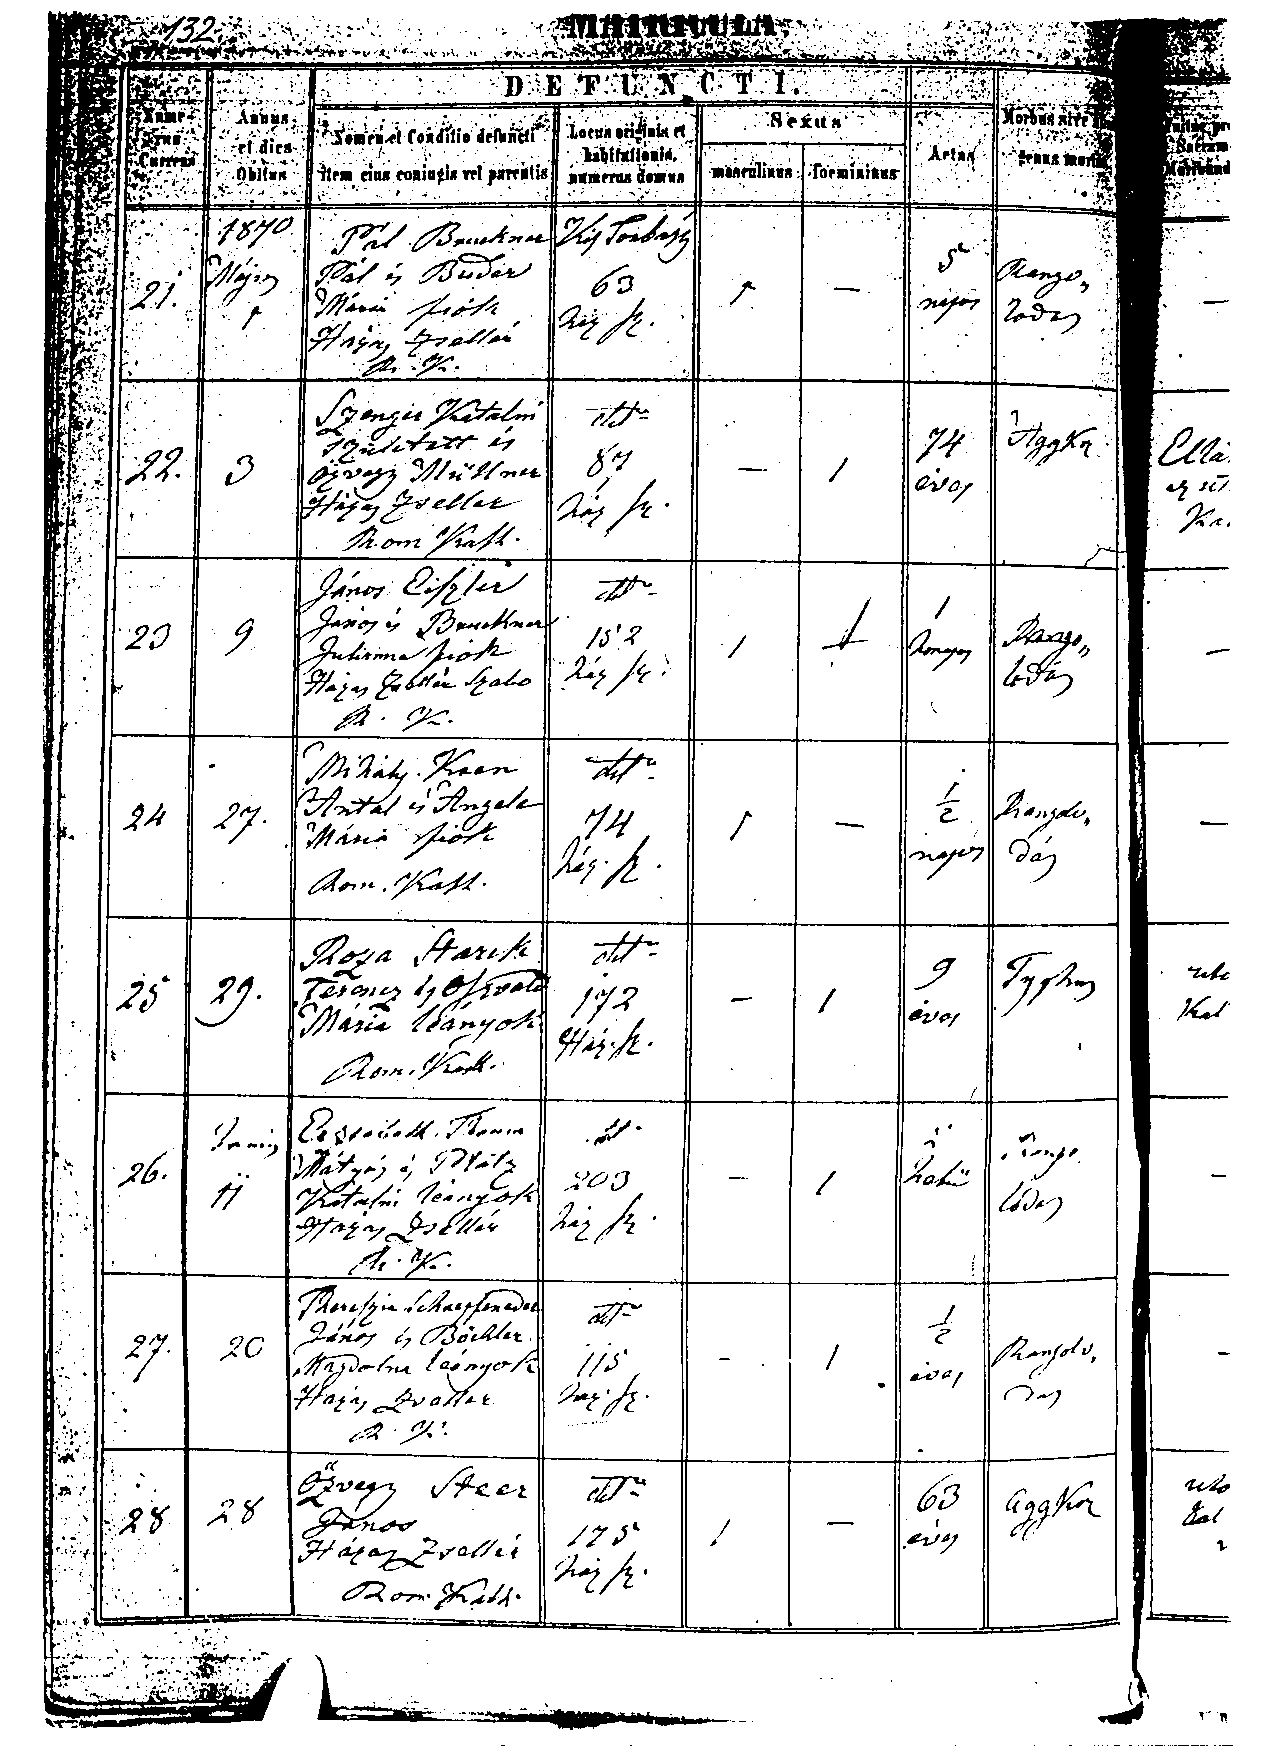 132.
MATRICULA.
DEFUNCTI.
Numerus Currens
Annus et dies Obitus
Nomen et Conditio defuncti item eius coniugis vel parentis
Locus originis et habitationis, numerus domus
Sexus
masculinus
foemininus
Aetas
Morbus sive genus mortis
21.
1870
Május
1
Pál Bruckner
Pál és Buder
Mária fiók
Házas Zsellér
R. K.
Kis Torbágy
63
ház sz.
1
—
5
napos
Rango„
lodás
—
22.
3
Szenger Katalin
született és
özvegy Müllner
Házas Zsellér
Rom Kath.
dtto
87
ház sz.
—
1
74
éves
Aggkor
Ellá
az
Ka
23
9
János Eiszler
János és Bruckner
Julianna fiók
Házas Zsellér Szabo
R. K.
dtto
152
ház sz.
1
1
honapos
Rango„
lodás
—
24
27.
Mihály Koen
Antal és Angele
Mária fiók
Rom. Kath.
dtto
74
ház. sz.
1
—
1/2
napos
Rangolo„
dás
—
25
29.
Roza Starck
Ferencz és Oswald
Mária leányok
Rom. Kath.
dtto
172
Ház. sz.
—
1
9
éves
Typhus
Kat
26.
Junius
11
Erzsébeth
Mátyás és Plátz
Katalin leányok
Házas Zsellér
R. K.
dtto
203
ház sz.
—
1
hetü
Rango
lodás
—
27.
20
Therezia Schaeffeneder
János és Böchler
Magdolna leányok
Házas Zsellér
R. K.
dtto
115
ház. sz.
—
1
1/2
éves
Rangolo„
dás
—
28
28
Özvegy Steer
János
Házas Zsellér
Rom. Kath.
dtto
175
ház sz.
1
—
63
éves
aggkor
Kat